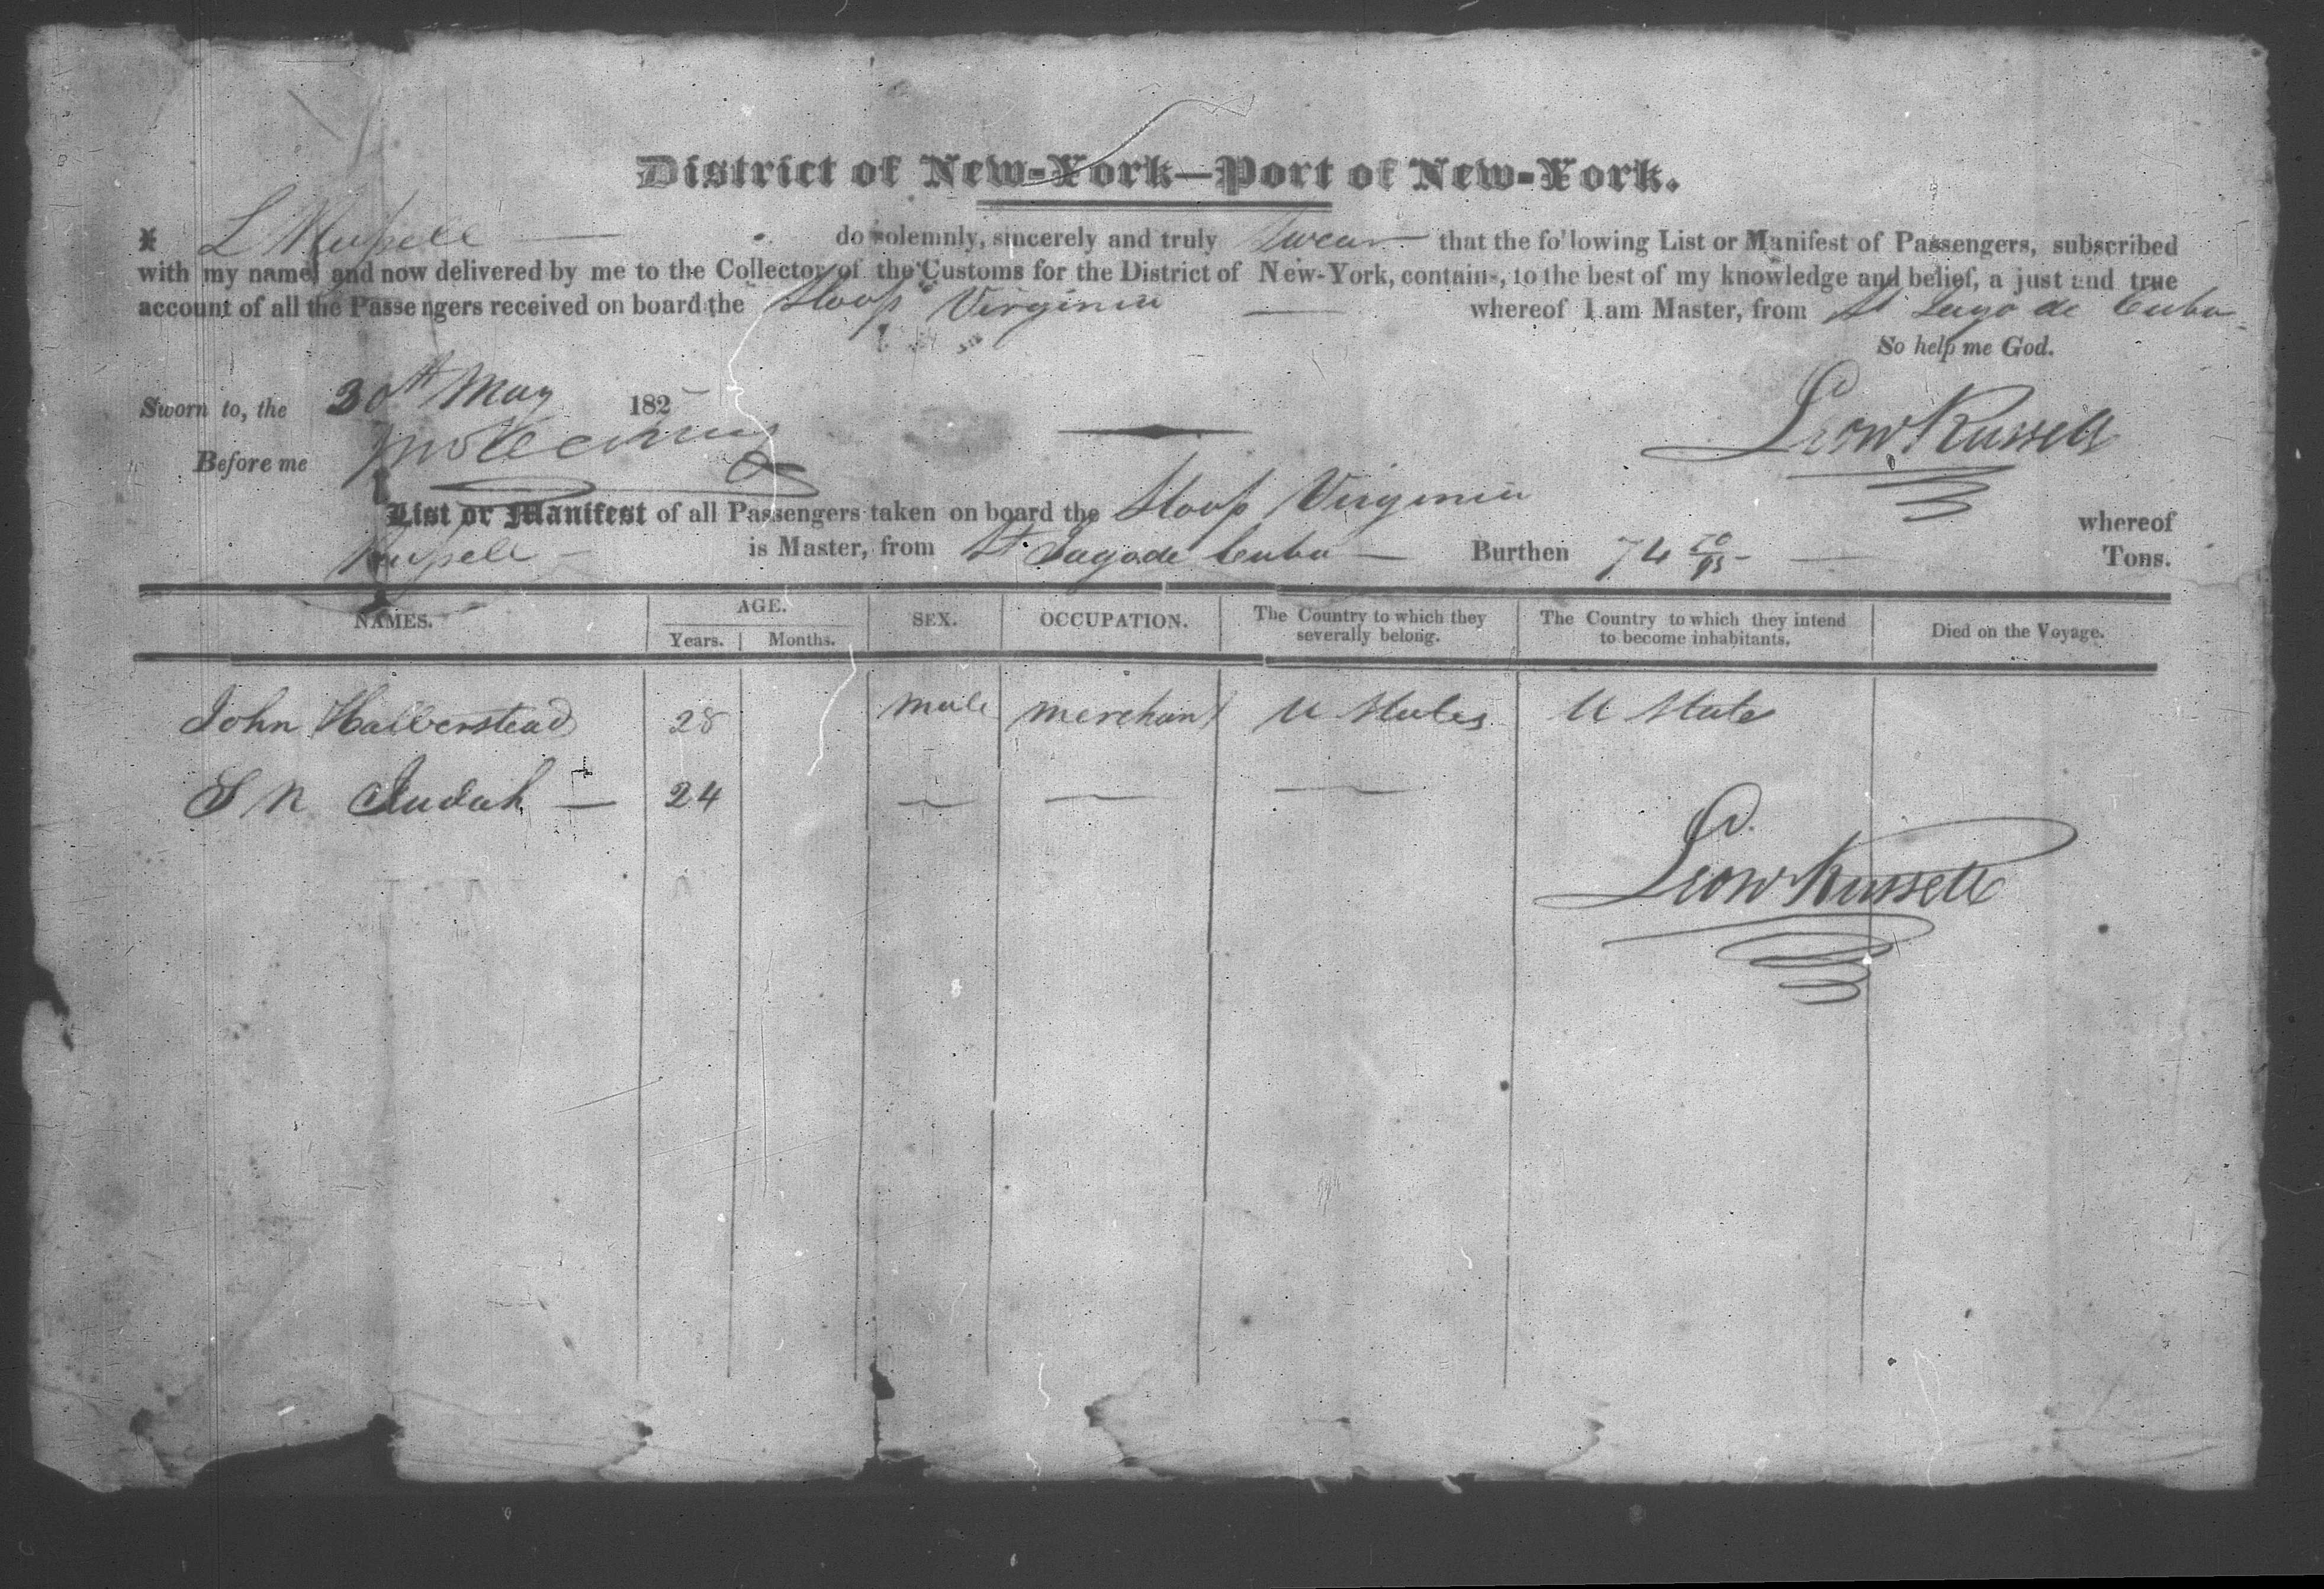 District of New-York—Port of New-York.
I L Russell — do solemnly, sincerely and truly Swear that the following List or Manifest of Passengers, subscribed
with my name, and now delivered by me to the Collector of the Customs for the District of New-York, contains, to the best of my knowledge and belief, a just and true
account of all the Passengers received on board the Sloop Virginia — whereof I am Master, from St Iago de Cuba
So help me God.
Sworn to, the 30th May 182
Before me
Russell
List or Manifest of all Passengers taken on board the Sloop Virginia whereof
Russell — is Master, from St Iago de Cuba — Burthen 74 Tons.
NAMES. AGE. SEX. OCCUPATION. The Country to which they severally belong. The Country to which they intend to become inhabitants. Died on the Voyage.
Years. Months.
John Halberstead 28 male merchant U States U State
S N Judah — 24 — — —
Russell